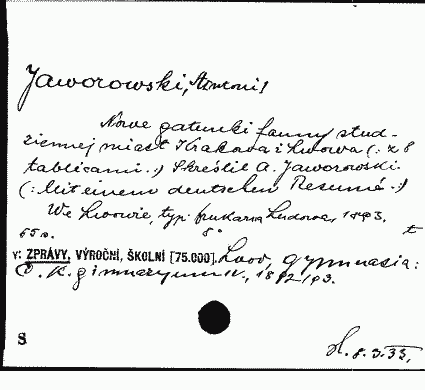 Jaworowski, Antoni
Nowe gatunki fauny stud-
ziennej miast Krakowa i Lwowa (: z 8
tablicami.:) Skreślił A. Jaworowski.
(: Mit einem deutschen Resumé.:)
We Lwowie, typ: Drukarnia Ludowa, 1893.
55 s. 8° t
v: ZPRÁVY, VÝROČNÍ, ŠKOLNÍ [75.000]. Lvov, gymnasia:
C. K. gimnazyum IV., 1892/93.
S
H. 8.3.33.